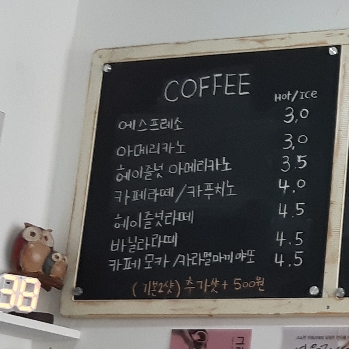 COFFEE
HOT/ICE
에스프레소 3,0
아메리카노 3,0
헤이즐넛 아메리카노 3.5
카페라떼/카푸치노 4.0
헤이즐넛라떼 4.5
바닐라라떼 4.5
카페모카/카라멜마끼야또 4.5
(기본2샷) 추가샷+500원
38